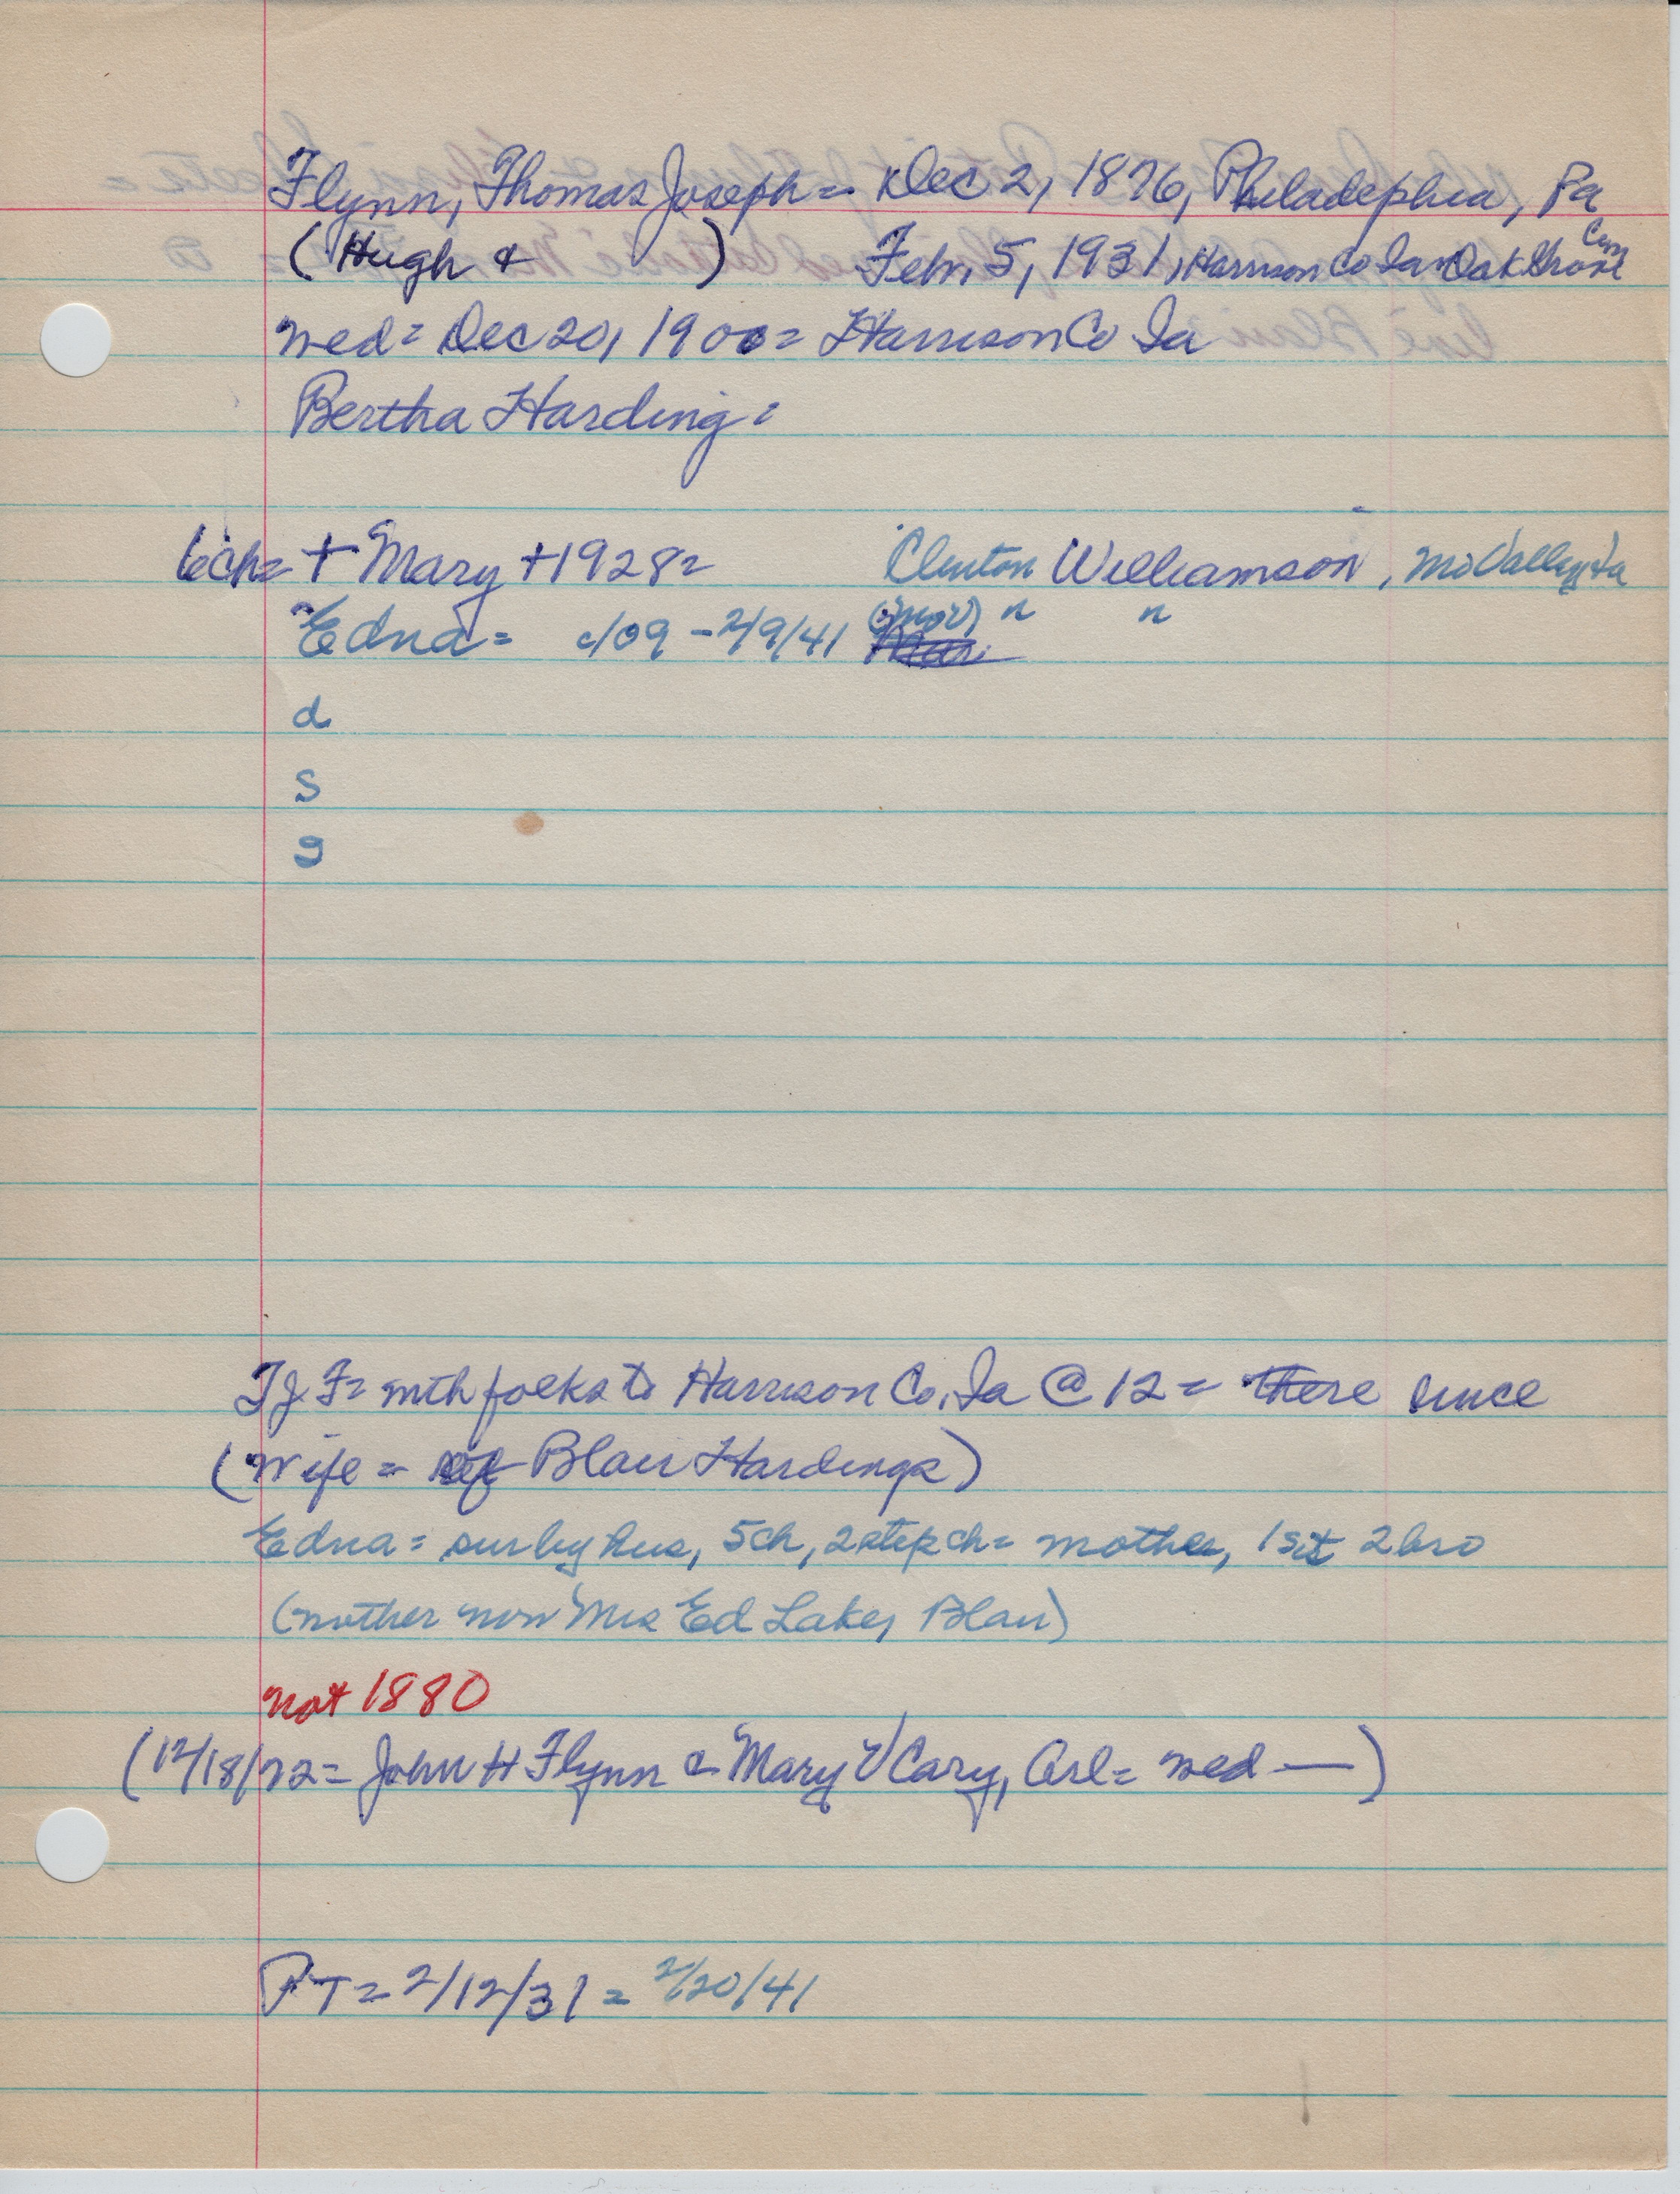 Flynn, Thomas Joseph = Dec 2, 1876, Philadephia, Pa
(Hugh & ) Feb. 5, 1931, Harrison Co Ia Oak Grove Cem
wed = Dec 20, 1900 = Harrison Co Ia
Bertha Harding =
6ch = + Mary +1928 = Clinton Williamson, Mo Valley Ia
Edna = c/09 - 2/9/41 (MoV) " "
d
s
s
TJF = with folks to Harrison Co. Ia @ 12 = there since
(Wife = of Blair Hardings)
Edna = sur by hus, 5ch, 2 step ch = mother, 1 sis 2 bro
(mother now Mrs Ed Lake, Blair)
not 1880
(12/18/22 = John H Flynn & Mary V Cary, Arl = wed —)
PT = 2/12/31 = 2/20/41